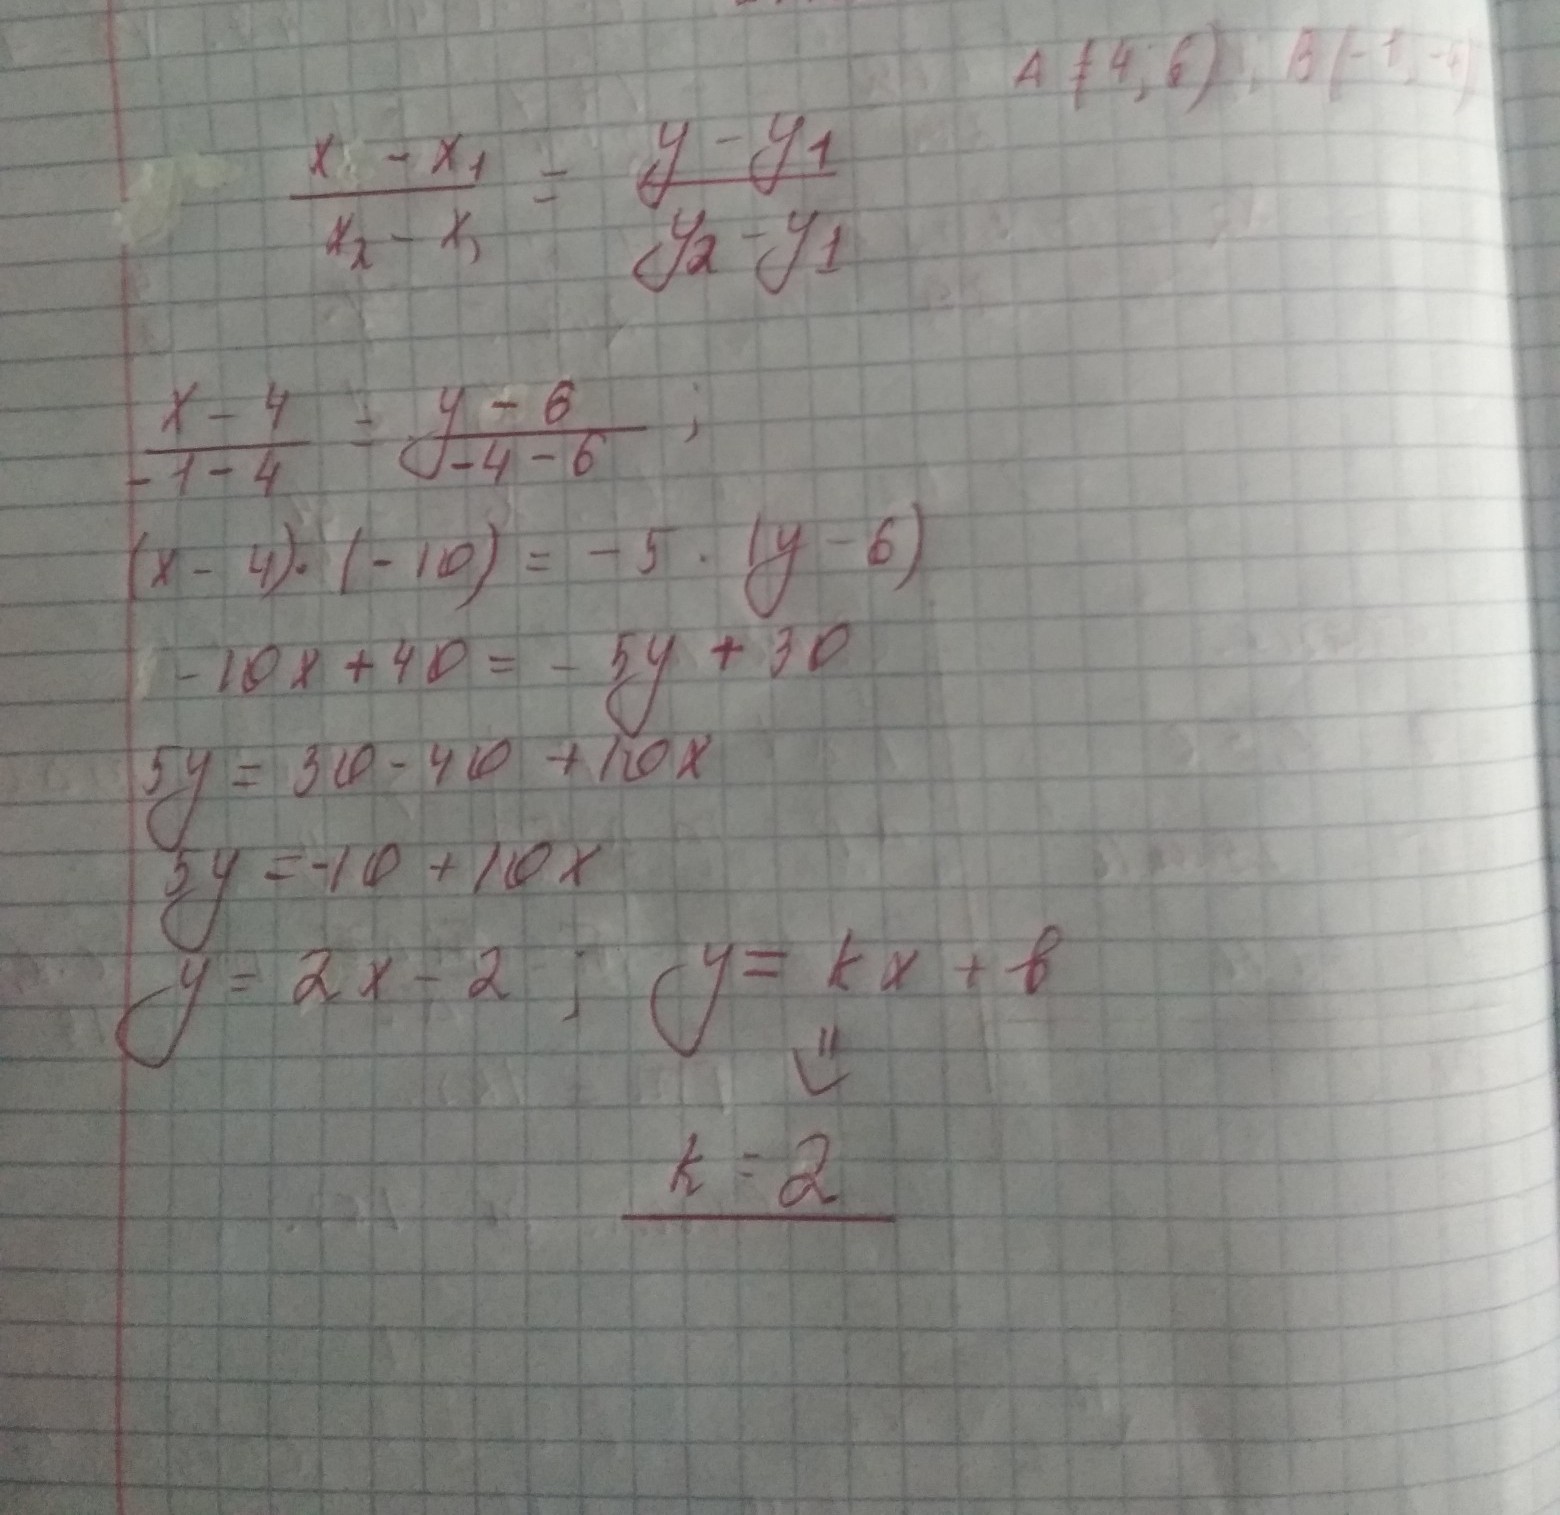 A (4; 6), B(-1; -4)
x - x₁ / x₂ - x₁ = y - y₁ / y₂ - y₁
x - 4 / -1 - 4 = y - 6 / -4 - 6 ;
(x - 4)·(-10) = -5 · (y - 6)
-10x + 40 = - 5y + 30
5y = 30 - 40 + 10x
5y = -10 + 10x
y = 2x - 2 ; y = kx + b
⇓
k = 2